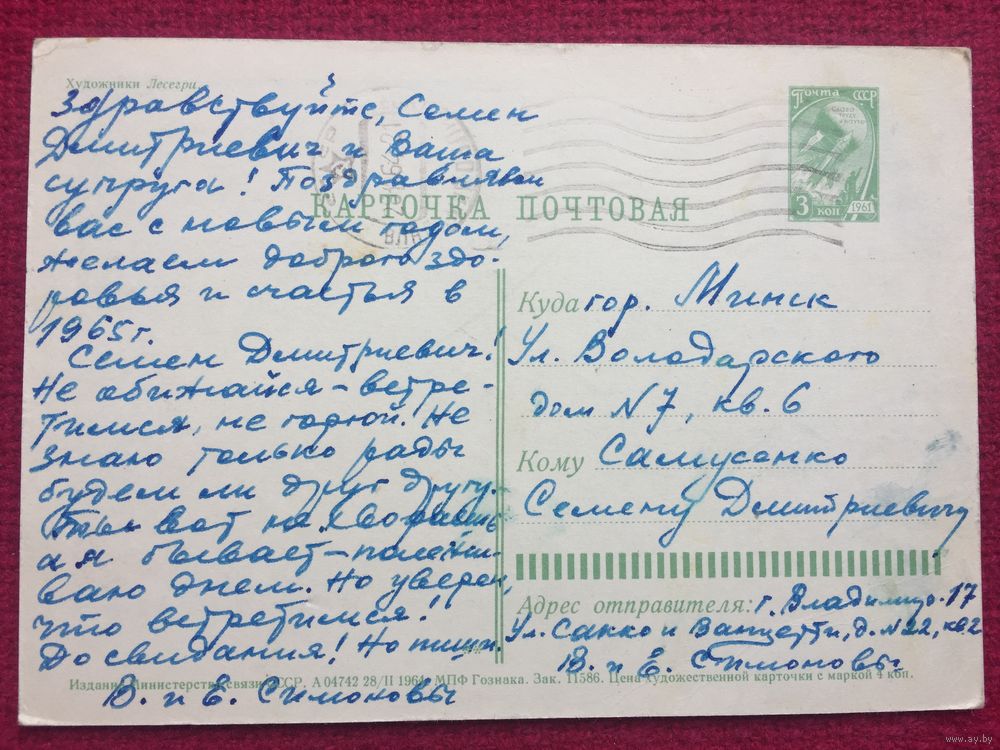 Художники Лесегри
Здравствуйте, Семен
Дмитриевич и Ваша
супруга! Поздравляем
вас с новым годом,
желаем доброго здо-
ровья и счастья в
1965г.
Семен Дмитриевич!
Не обижайся - встре-
тимся, не горюй. Не
знаю только рады
будем ли друг другу.
Ты вот
а я бывает - полёжи-
ваю днем. Но уверен,
что встретимся!
До свидания! Но пиши.
В. и Е. Симоновы
Почта СССР
3 коп
1961
КАРТОЧКА ПОЧТОВАЯ
Куда гор. Минск
Ул. Володарского
дом N7, кв. 6
Кому Самусенко
Семену Дмитриевичу
Адрес отправителя: г. Владимир-17
Ул. Сакко и Ванцетти, д. N22, кв 2
В. и Е. Симоновы
Издание Министерства связи СССР. А 04742 28/II 1964. МПФ Гознака. Зак. 11586. Цена художественной карточки с маркой 4 коп.
www.ay.by